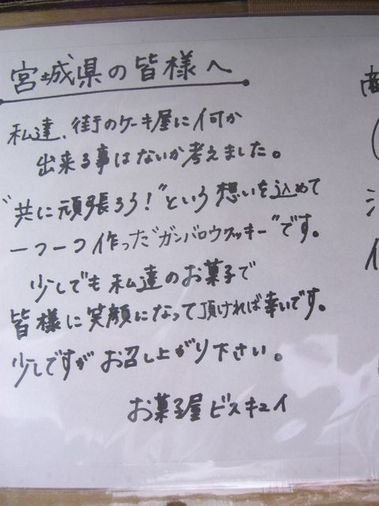 宮城県の皆様へ
私達、街のケーキ屋に何か
出来る事はないか考えました。
"共に頑張ろう!"という想いを込めて
一つ一つ作った"ガンバロウクッキー"です。
少しでも私達のお菓子で
皆様に笑顔になって頂ければ幸いです。
少しですがお召し上がり下さい。
お菓子屋ビスキュイ